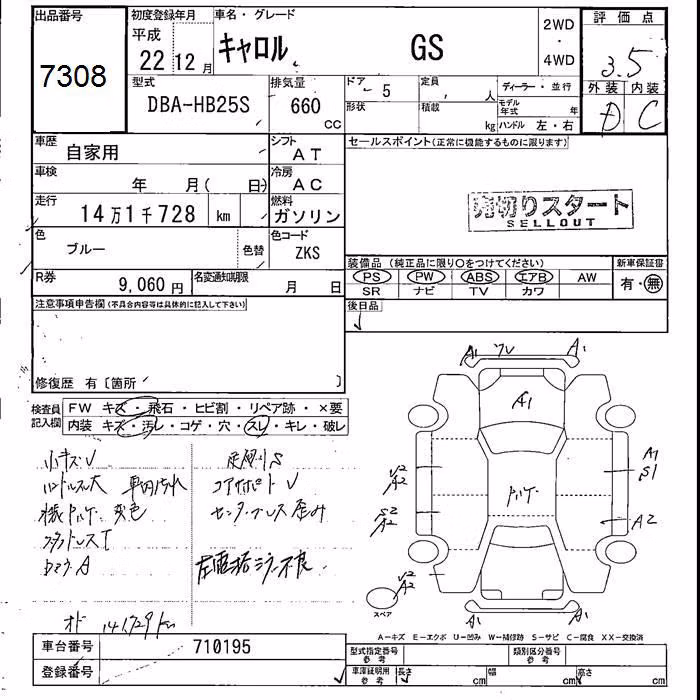 出品番号 7308
初度登録年月 平成 22 12 月
車名・グレード キャロル GS
2WD・4WD
評価点 3.5
外装 内装
D C
型式 DBA-HB25S
排気量 660 CC
ドア 5
形状
定員 人
積載 kg
ディーラー・並行
モデル年式 年
ハンドル 左・右
車歴 自家用
シフト AT
車検 年 月( 日)
冷房 AC
走行 14万1千728 km
燃料 ガソリン
色 ブルー 色替
色コード ZKS
R券 9,060円
名変通知期限 月 日
セールスポイント(正常に機能するものに限ります)
売切りスタート
SELLOUT
装備品(純正品に限り○をつけてください)
新車保証書
PS PW ABS エアB AW
SR ナビ TV カワ
有・無
後日品
注意事項申告欄(不具合内容等は具体的に記入して下さい)
修復歴 有〔箇所 〕
検査員記入欄
FW キズ・飛石・ヒビ割・リペア跡・×要
内装 キズ・汚レ・コゲ・穴・スレ・キレ・破レ
小キズV
ハンドルスレ大 車内汚れ
変色
コアサポート V
センターピラー歪み
オド 141729km
A1 A1
A1
V2
A2
S2
A2
V2
A2
A1
S1
A2
A1 A1
スペア
A-キズ E-エクボ U-凹み W-補修跡 S-サビ C-腐食 XX-交換済
車台番号 710195
登録番号
型式指定番号 参考
類別区分番号 参考
車庫証明用 参考 長さ cm 幅 cm 高さ cm